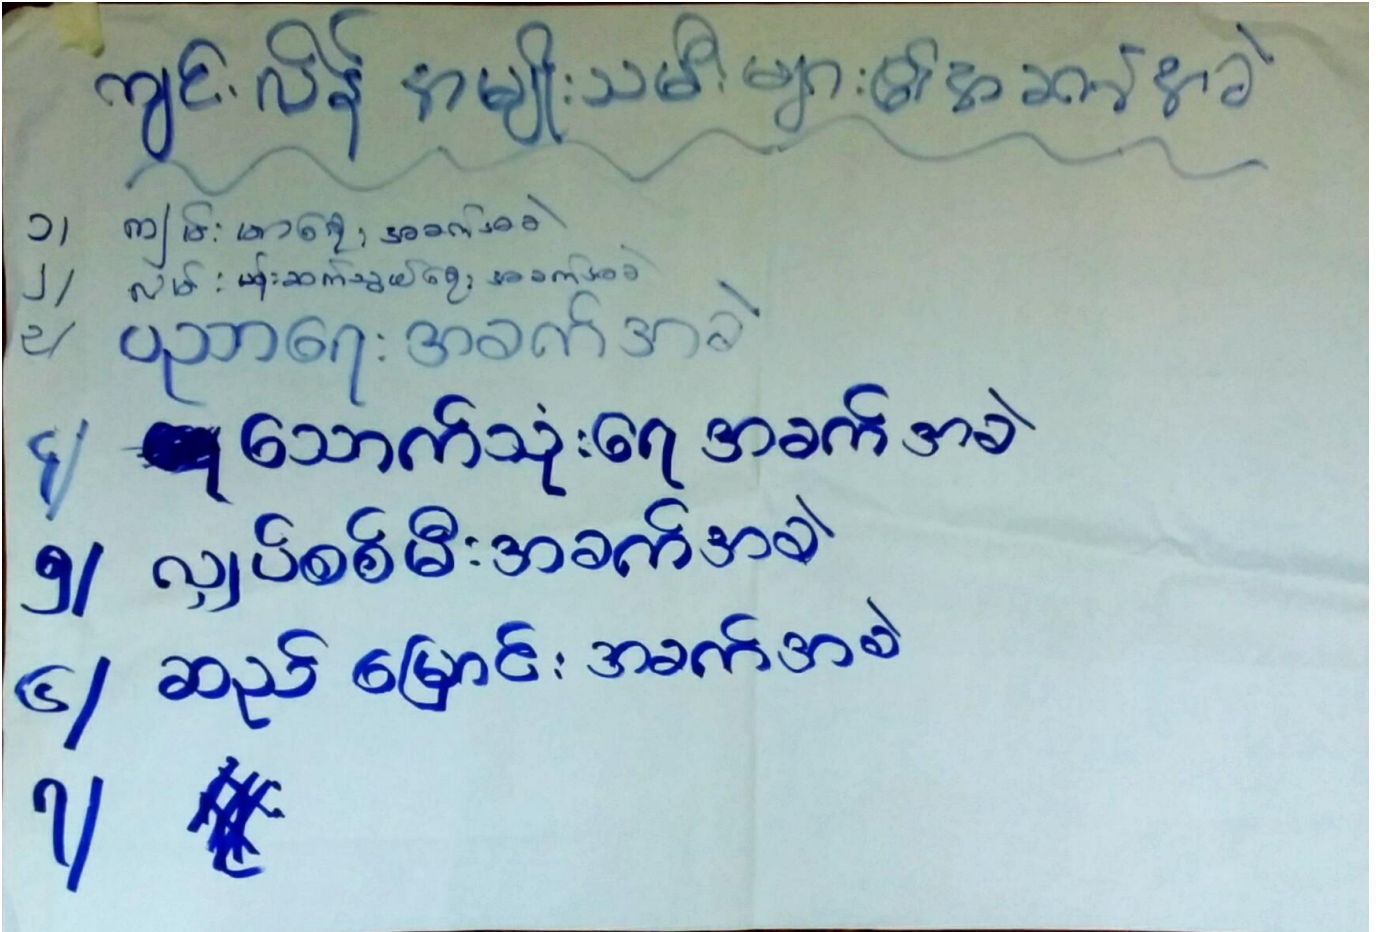 ကျင်းလိန် အမျိုးသမီးများ၏အခက်အခဲ
၁/ ကျမ်းမာရေး အခက်အခဲ
၂/ လမ်းပန်းဆက်သွယ်ရေး အခက်အခဲ
၃/ ပညာရေးအခက်အခဲ
၄/ သောက်သုံးရေ အခက်အခဲ
၅/ လျှပ်စစ်မီးအခက်အခဲ
၆/ ဆည် မြောင်းအခက်အခဲ
၇/